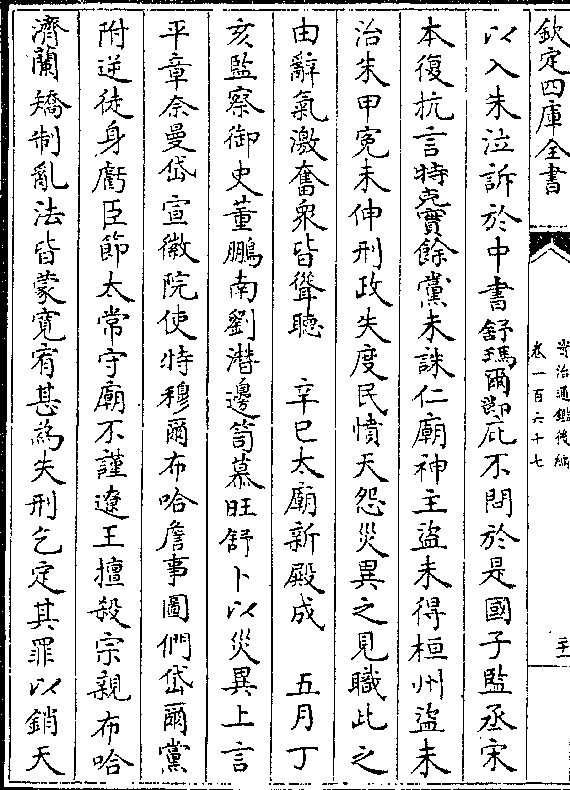 欽定四庫全書
資治通鑑後編
卷一百六十七
二十一
以入朱泣訴於中書舒瑪爾節庇不問於是國子監丞宋
本復抗言特克實餘黨未誅仁廟神主盜未得桓州盜未
治朱甲冤未伸刑政失度民憤天怨災異之見職此之
由辭氣激奮衆皆聳聽　辛巳太廟新殿成　五月丁
亥監察御史董鵬南劉潛邊笥慕旺舒卜以災異上言
平章奈曼岱宣徽院使特穆爾布哈詹事圖們岱爾黨
附逆徒身虧臣節太常守廟不謹遼王擅殺宗親布哈
濟蘭矯制亂法皆蒙寬宥甚為失刑乞定其罪以銷天